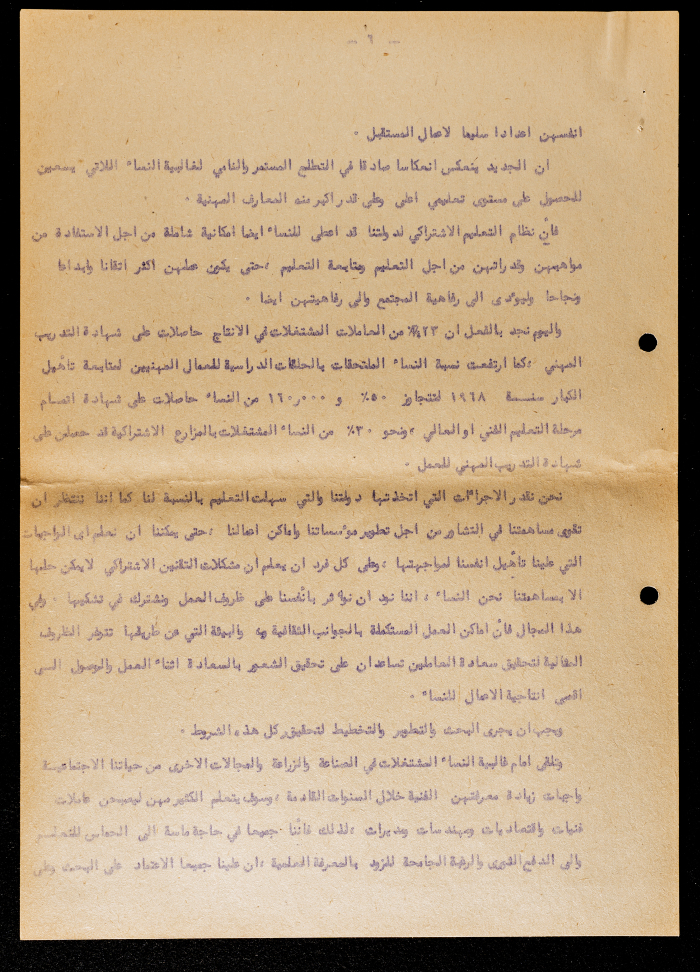 — ٦ —
انفسهن اعدادا سليما لاعمال المستقبل .
ان الجديد ينعكس انعكاسا صادقا في التطلع المستمر والنامي لغالبية النساء اللاتي يسعين
للحصول على مستوى تعليمي اعلى وعلى قدر اكبر من المعارف المهنية .
فأن نظام التعليم الاشتراكي لدولتنا قد اعطى للنساء ايضا امكانية شاملة من اجل الاستفادة من
مواهبهن وقدراتهن من اجل التعليم ومتابعة التعليم ، حتى يكون عملهن اكثر اتقانا وابداعا
ونجاحا وليؤدى الى رفاهية المجتمع والى رفاهيتهن ايضا .
واليوم نجد بالفعل ان ٢٣٪ من العاملات المشتغلات في الانتاج حاصلات على شهادة التدريب
المهني ، كما ارتفعت نسبة النساء الملتحقات بالحلقات الدراسية للعمال المهنيين لمتابعة تأهيل
الكبار سنة ١٩٦٨ لتتجاوز ٥٠٪ و ١٦٠٫٠٠٠ من النساء حاصلات على شهادة اتمام
مرحلة التعليم الفني او العالي ، ونحو ٣٠٪ من النساء المشتغلات بالمزارع الاشتراكية قد حصلن على
شهادة التدريب المهني للعمل .
نحن نقدر الاجراءات التي اتخذتها دولتنا والتي سهلت التعليم بالنسبة لنا كما اننا ننتظر ان
تقوى مساهمتنا في التشاور من اجل تطوير مؤسساتنا واماكن اعمالنا ، حتى يمكننا ان نعلم اى الواجبات
التي علينا تأهيل انفسنا لمواجهتها ، وعلى كل فرد ان يعلم أن مشكلات التقنين الاشتراكي لايمكن حلها
الا بمساهمتنا نحن النساء ، اننا نود ان نؤثر بانفسنا على ظروف العمل ونشترك في تشكيلها . وفي
هذا المجال فأن اماكن العمل المستكملة بالجوانب الثقافية والبيئة التي عن طريقها تتوفر الظروف
المثالية لتحقيق سعادة العاملين تساعدان على تحقيق الشعور بالسعادة اثناء العمل والوصول الى
اقصى انتاجية الاعمال للنساء .
ويجب ان يجرى البحث والتطوير والتخطيط لتحقيق كل هذه الشروط .
وتلقى امام غالبية النساء المشتغلات في الصناعة والزراعة والمجالات الاخرى من حياتنا الاجتماعية
واجبات زيادة معرفتهن الفنية خلال السنوات القادمة ، وسوف يتعلم الكثير منهن ليصبحن عاملات
فنيات واقتصاديات ومهندسات ومديرات ، لذلك فاننا جميعا في حاجة ماسة الى الحماس للتعليم
والى الدفع القوى والرغبة الجامحة للتزود بالمعرفة العلمية ، ان علينا جميعا الاعتماد على البحث وعلى